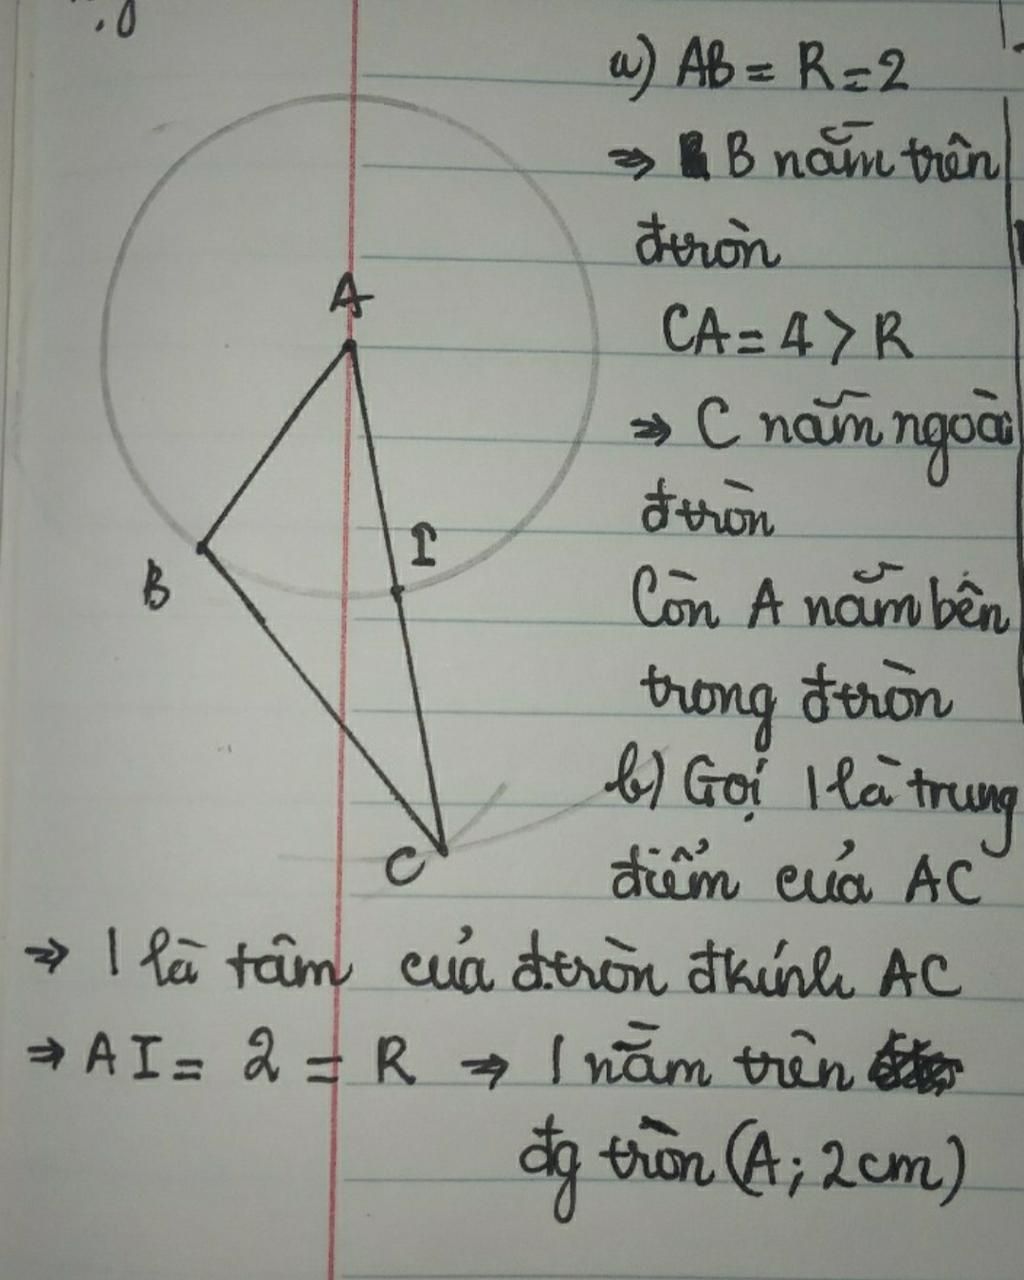 a) AB = R = 2
⇒ B nằm trên
đtròn
A
CA = 4 > R
⇒ C nằm ngoài
đtròn
I
B
Còn A nằm bên
trong đtròn
b) Gọi I là trung
điểm của AC
C
⇒ I là tâm của đtròn đkính AC
⇒ AI = 2 = R ⇒ I nằm trên
đg tròn (A; 2cm)